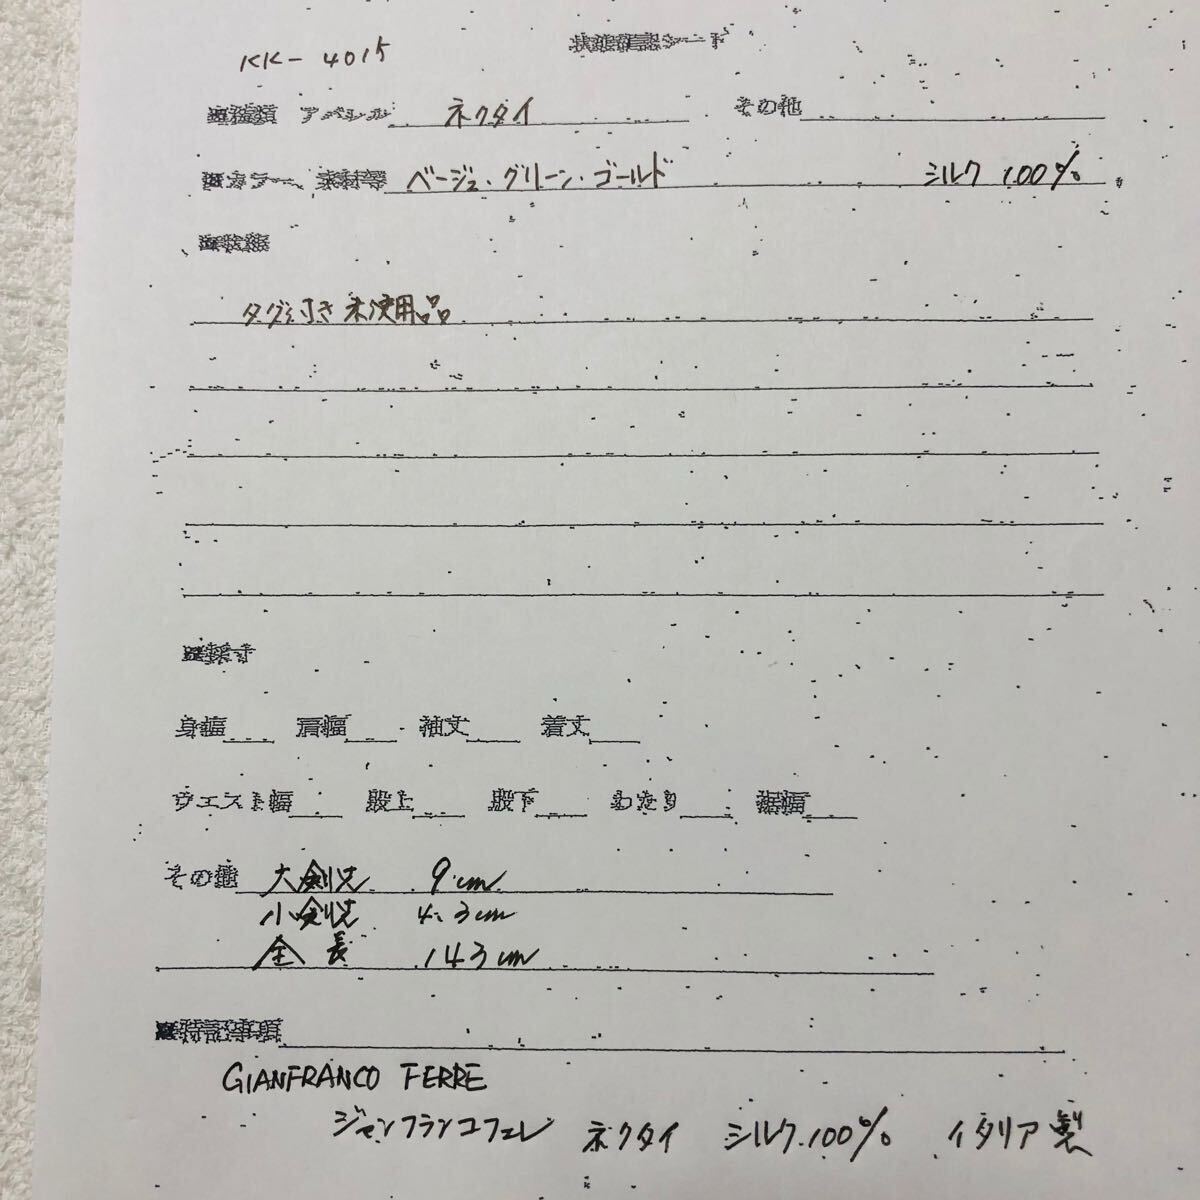 KK-4015
状態確認シート
■種類 アパレル ネクタイ その他
■カラー、素材等 ベージュ・グリーン・ゴールド シルク 100%
■状態
タグ付き 未使用品
■採寸
身幅 肩幅 袖丈 着丈
ウエスト幅 股上 股下 わたり 裾幅
その他 大剣先 9cm
小剣先 4.3cm
全長 143cm
■特記事項
GIANFRANCO FERRE
ジャンフランコフェレ ネクタイ シルク100% イタリア製